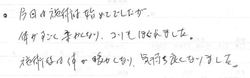 今回の施術は始めてでしたが
体がすごく柔かくなり、コリもほぐれました。
施術後は体が暖かくなり、気持ち良くなりました。